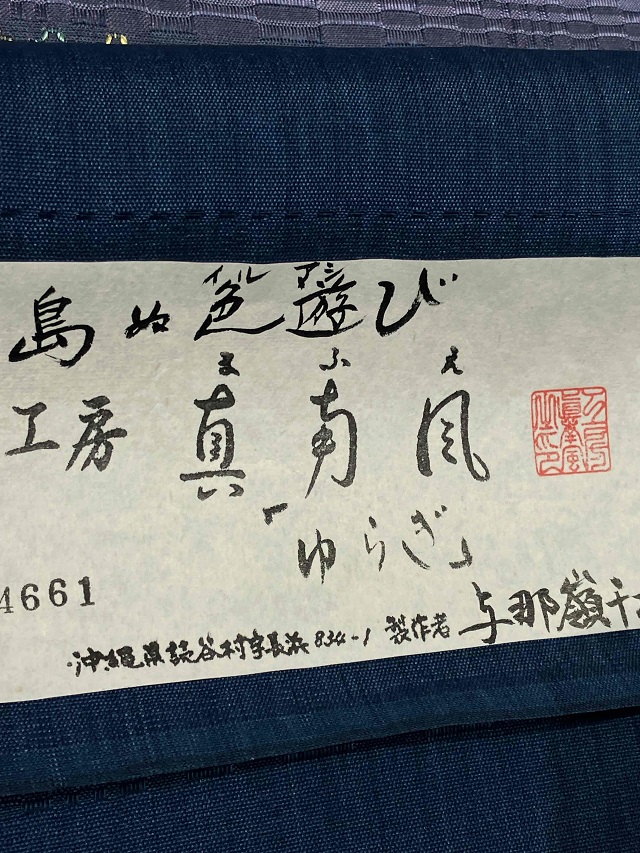 イル アシ
島ぬ色遊び
ま ふ え
工房 真南風
「ゆらぎ」
4661
沖縄県読谷村字長浜834-1 製作者 与那嶺千